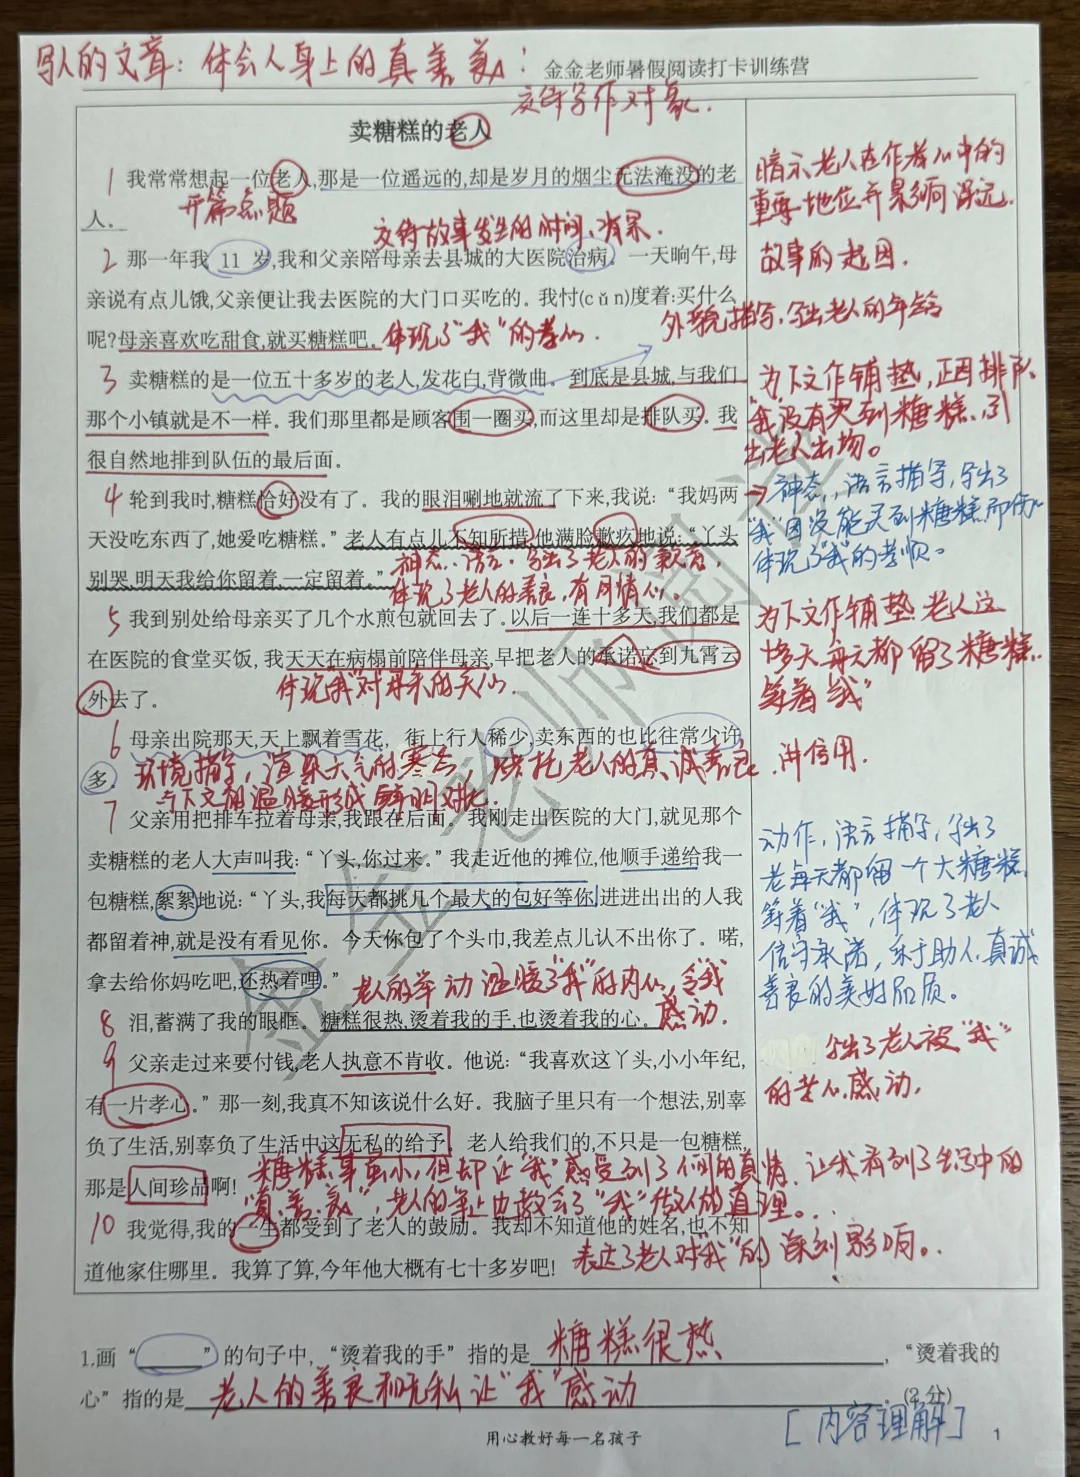 写人的文章：体会人身上的真善美：
金金老师暑假阅读打卡训练营
交待写作对象.
卖糖糕的老人
1 我常常想起一位老人,那是一位遥远的,却是岁月的烟尘无法淹没的老
人。 开篇点题
暗示老人在作者心中的
重要地位并影响深远.
交待故事发生的时间、背景.
2 那一年我 11 岁,我和父亲陪母亲去县城的大医院治病。一天晌午,母
故事的起因.
亲说有点儿饿,父亲便让我去医院的大门口买吃的。我忖(cǔn)度着:买什么
呢?母亲喜欢吃甜食,就买糖糕吧。体现了"我"的孝心.
外貌描写,写出老人的年龄
3 卖糖糕的是一位五十多岁的老人,发花白,背微曲。到底是县城,与我们
那个小镇就是不一样。我们那里都是顾客围一圈买,而这里却是排队买。我
很自然地排到队伍的最后面。
为下文作铺垫,正因排队
"我"没有买到糖糕,引
出老人出场。
4 轮到我时,糖糕恰好没有了。我的眼泪唰地就流了下来,我说：“我妈两
天没吃东西了,她爱吃糖糕。”老人有点儿不知所措,他满脸歉疚地说：“丫头
别哭,明天我给你留着,一定留着。”
神态、语言描写,写出了
"我"因没能买到糖糕而伤心
体现了"我"的孝顺。
神态、语言,写出了老人的歉意,
体现了老人的善良,有同情心.
5 我到别处给母亲买了几个水煎包就回去了。以后一连十多天,我们都是
在医院的食堂买饭,我天天在病榻前陪伴母亲,早把老人的承诺忘到九霄云
外去了。 体现"我"对母亲的关心.
为下文作铺垫 老人这
十多天每天都留了糖糕
等着"我"
6 母亲出院那天,天上飘着雪花，街上行人稀少,卖东西的也比往常少许
多。环境描写,渲染天气的寒冷,烘托老人的真诚善良.讲信用.
与下文的温暖形成鲜明对比.
7 父亲用把排车拉着母亲,我跟在后面。我刚走出医院的大门,就见那个
卖糖糕的老人大声叫我：“丫头,你过来。”我走近他的摊位,他顺手递给我一
包糖糕,絮絮地说：“丫头,我每天都挑几个最大的包好等你,进进出出的人我
都留着神,就是没有看见你。今天你包了个头巾,我差点儿认不出你了。喏,
拿去给你妈吃吧,还热着哩。”
动作,语言描写,写出了
老每天都留一个大糖糕
等着"我",体现了老人
信守承诺,乐于助人.真诚
善良的美好品质。
老人的举动温暖了"我"的内心,令我
感动.
8 泪,蓄满了我的眼眶。糖糕很热,烫着我的手,也烫着我的心。
9 父亲走过来要付钱,老人执意不肯收。他说：“我喜欢这丫头,小小年纪,
有一片孝心。”那一刻,我真不知该说什么好。我脑子里只有一个想法,别辜
负了生活,别辜负了生活中这无私的给予。老人给我们的,不只是一包糖糕,
那是人间珍品啊!
写出了老人被"我"
的孝心感动.
糖糕事虽小,但却让"我"感受到了人间的真情.让我看到了生活中的
"真、善、美",老人的举止也教会了"我"做人的道理。
10 我觉得,我的一生都受到了老人的鼓励。我却不知道他的姓名,也不知
道他家住哪里。我算了算,今年他大概有七十多岁吧!
表达了老人对"我"的深刻影响。
1.画“____”的句子中，“烫着我的手”指的是 糖糕很热 ，“烫着我的
心”指的是 老人的善良和无私让"我"感动 。(2分)
[内容理解]
用心教好每一名孩子
1
金金老师阅读